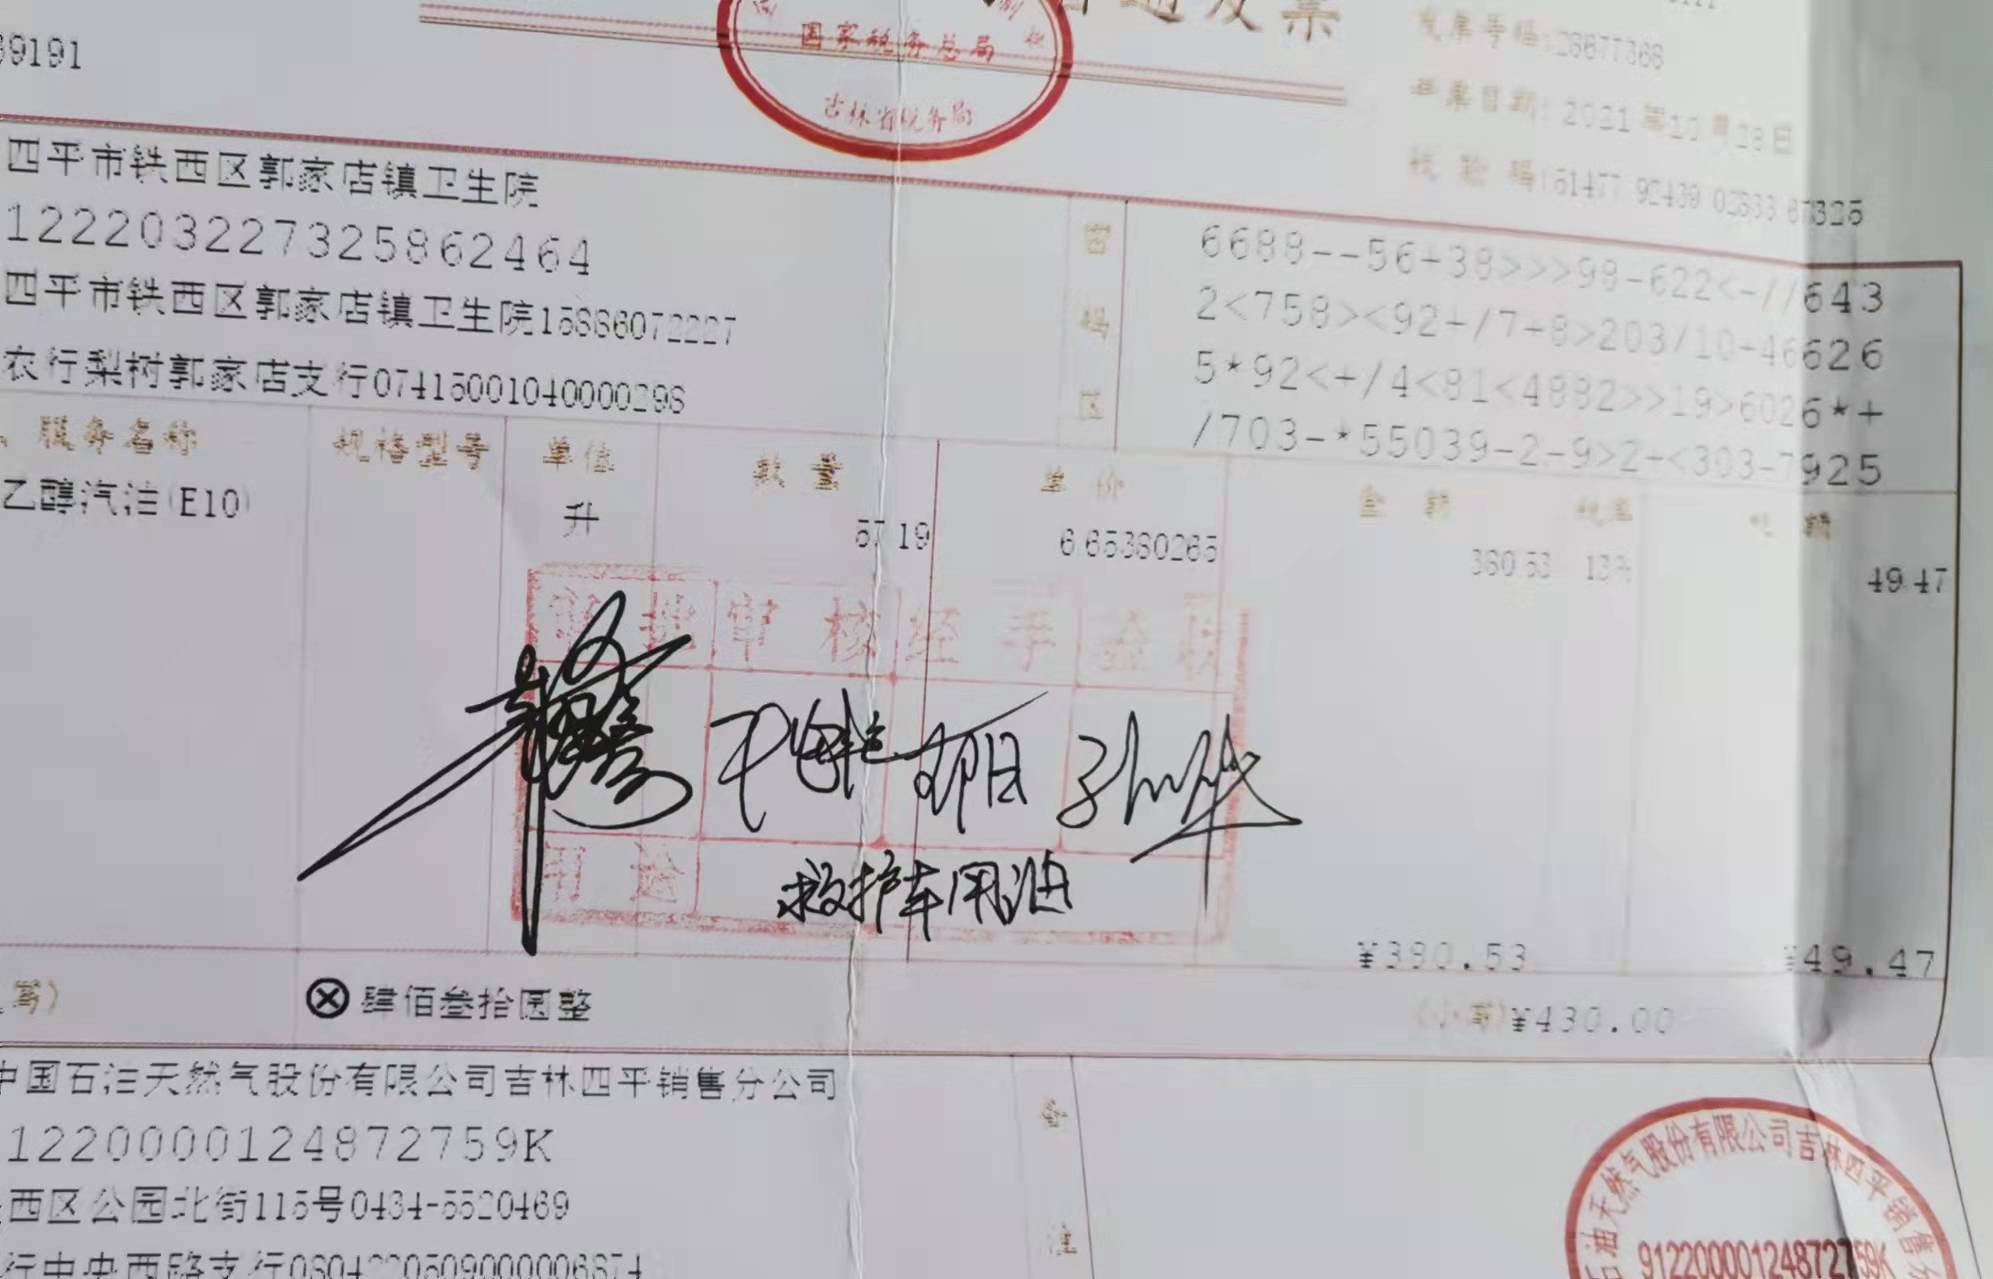 普通发票
国家税务总局
吉林省税务局
39191
发票号码:28677368
开票日期: 2021 年10 月28 日
校 验 码:61477 92439 02833 67325
四平市铁西区郭家店镇卫生院
122203227325862464
四平市铁西区郭家店镇卫生院15886072227
农行梨树郭家店支行07415001040000298
密码区
6688--56+38>>>98-622<-//643
2<758><92+/7+8>203/10-46626
5*92<+/4<81<4882>>19>6026*+
/703-*55039-2-9>2+<303-7925
、服务名称 规格型号 单位 数 量 单 价 金 额 税率 税 额
乙醇汽油(E10) 升 57.19 6.65380265 380.53 13% 49.47
审 批 审 核 经 手 验 收
用 途 救护车用油
¥380.53 ¥49.47
写) ⊗ 肆佰叁拾圆整 (小写)¥430.00
中国石油天然气股份有限公司吉林四平销售分公司
12200001248727 59K
西区公园北街115号0434-5520469
行中央西路支行
备
注
石油天然气股份有限公司吉林四平销售分
91220000124872759K